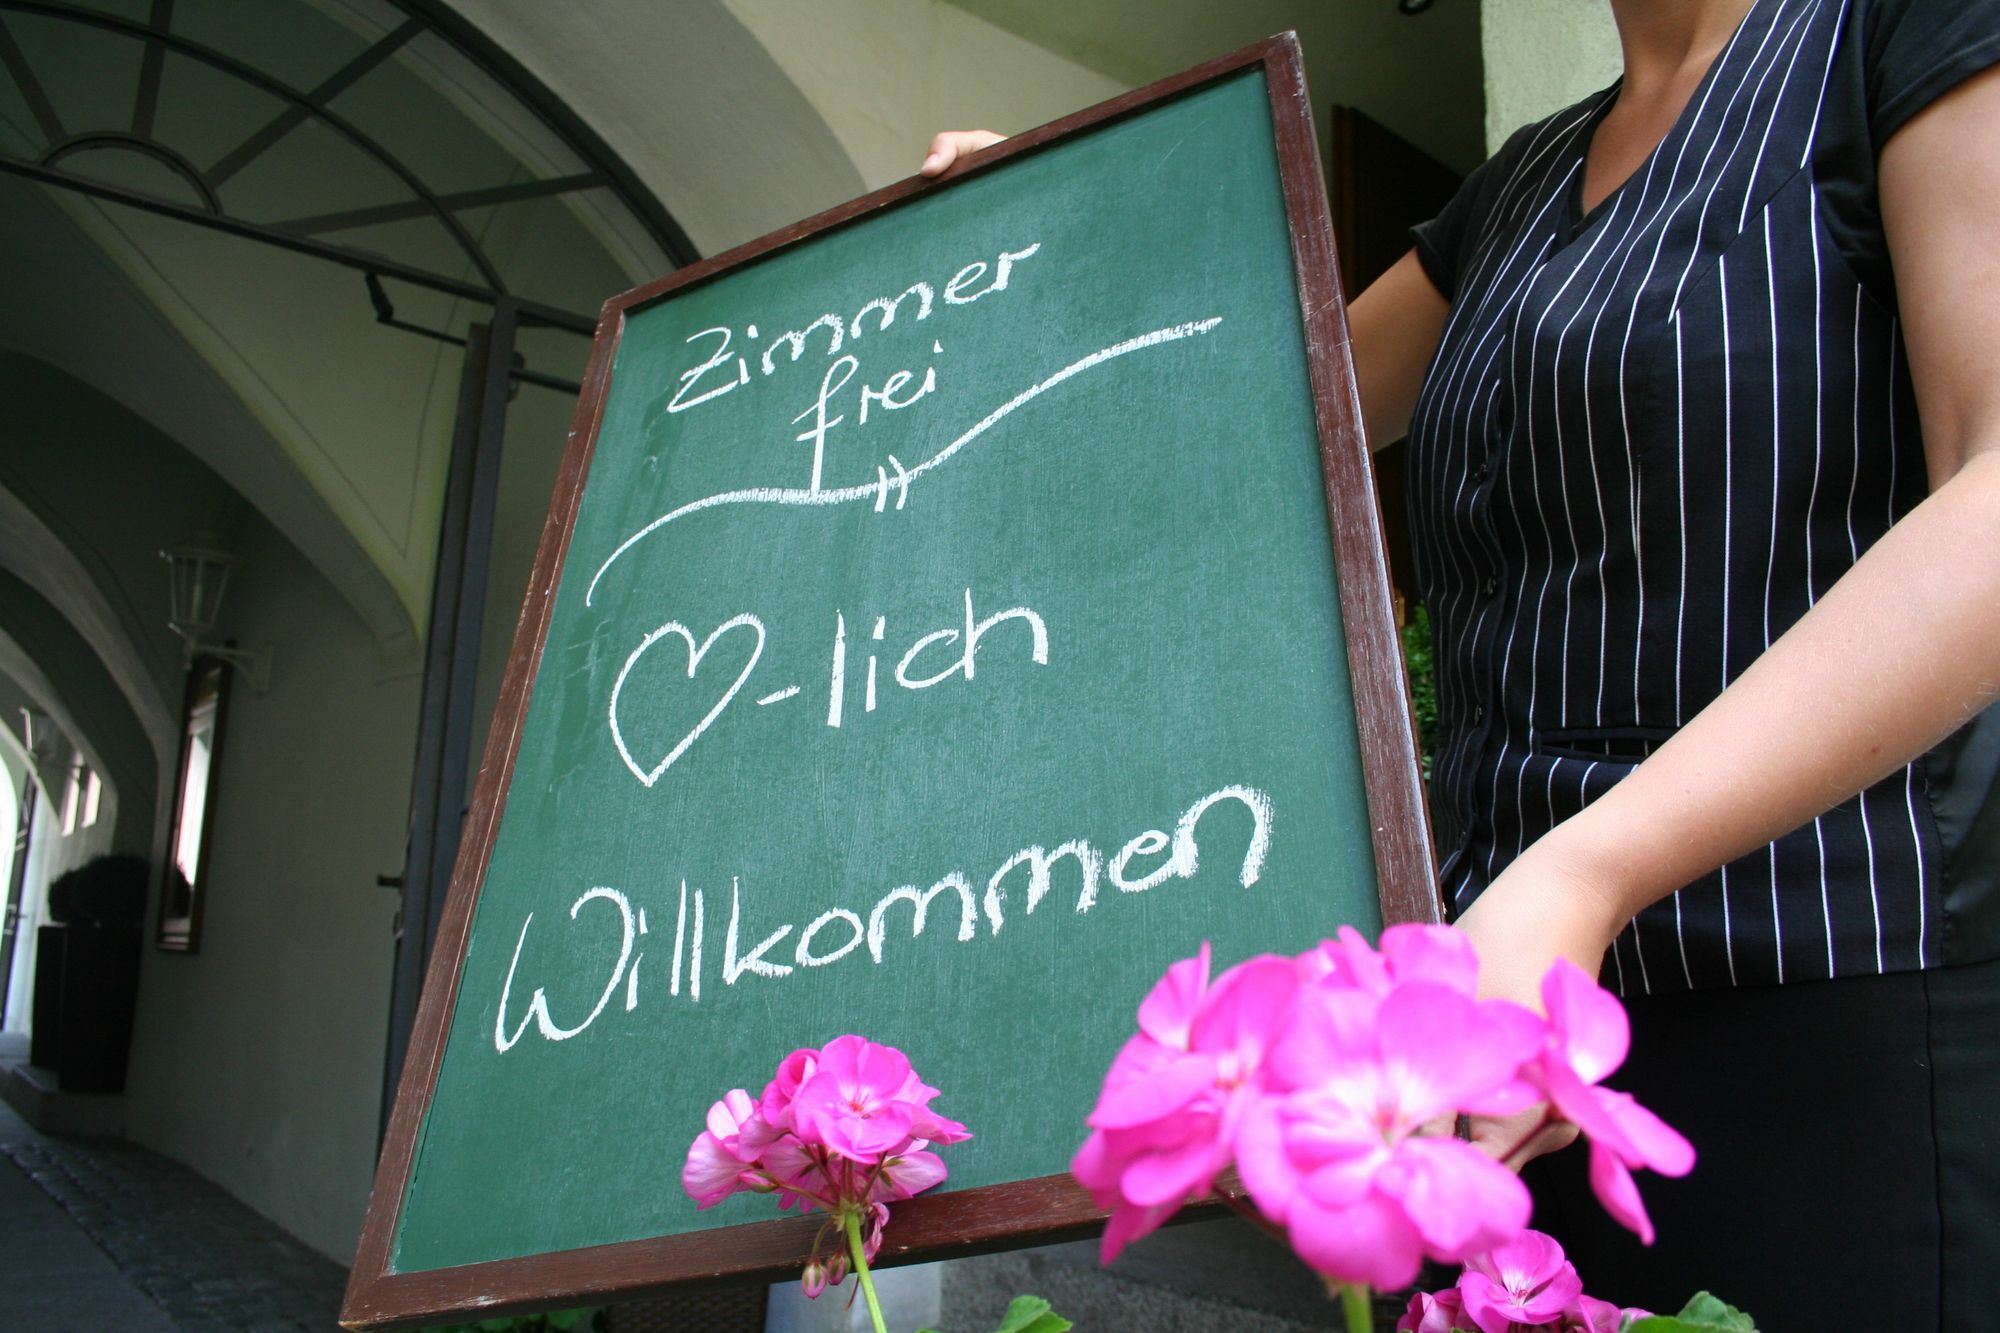 Zimmer
frei
♡-lich
Willkommen